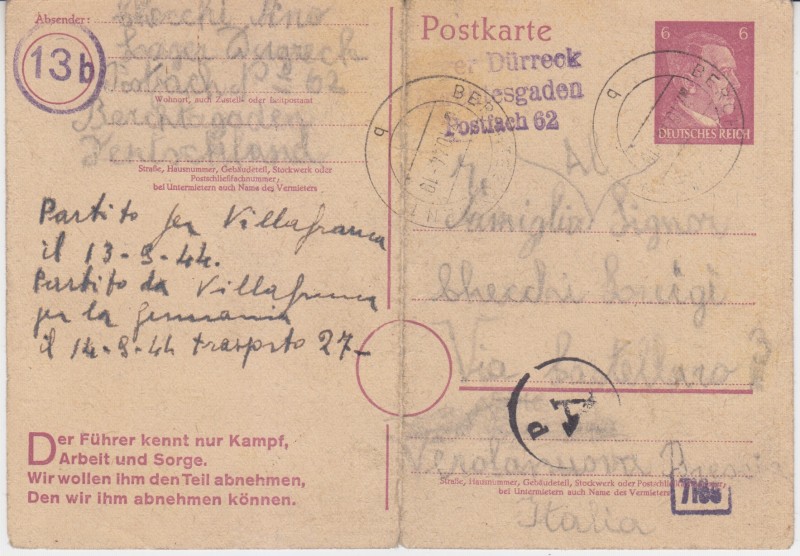 Absender: Checchi Nino
13b
Lager Dürreck
Postfach 62
Wohnort, auch Zustell- oder Leitpostamt
Berchtesgaden
Straße, Hausnummer, Gebäudeteil, Stockwerk oder
Postschließfachnummer;
bei Untermietern auch Name des Vermieters
Partito per Villafranca
il 13-9-44.
Partito da Villafranca
per la Germania
il 14-9-44 trasporto 27-
Der Führer kennt nur Kampf,
Arbeit und Sorge.
Wir wollen ihm den Teil abnehmen,
Den wir ihm abnehmen können.
Postkarte
er Dürreck
esgaden
Postfach 62
6 6
DEUTSCHES REICH
BER
b
BER
b
Al
Famiglia Signor
Checchi Luigi
Via Castellaro
P
Verolanuova Brescia
Straße, Hausnummer, Gebäudeteil, Stockwerk oder
bei Untermietern auch Name des Vermieters
Italia